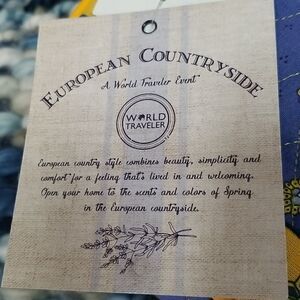 EUROPEAN COUNTRYSIDE
A World Traveler Event™
WORLD
TRAVELER
European country style combines beauty, simplicity and
comfort for a feeling that's lived in and welcoming.
Open your home to the scents and colors of Spring
in the European countryside.